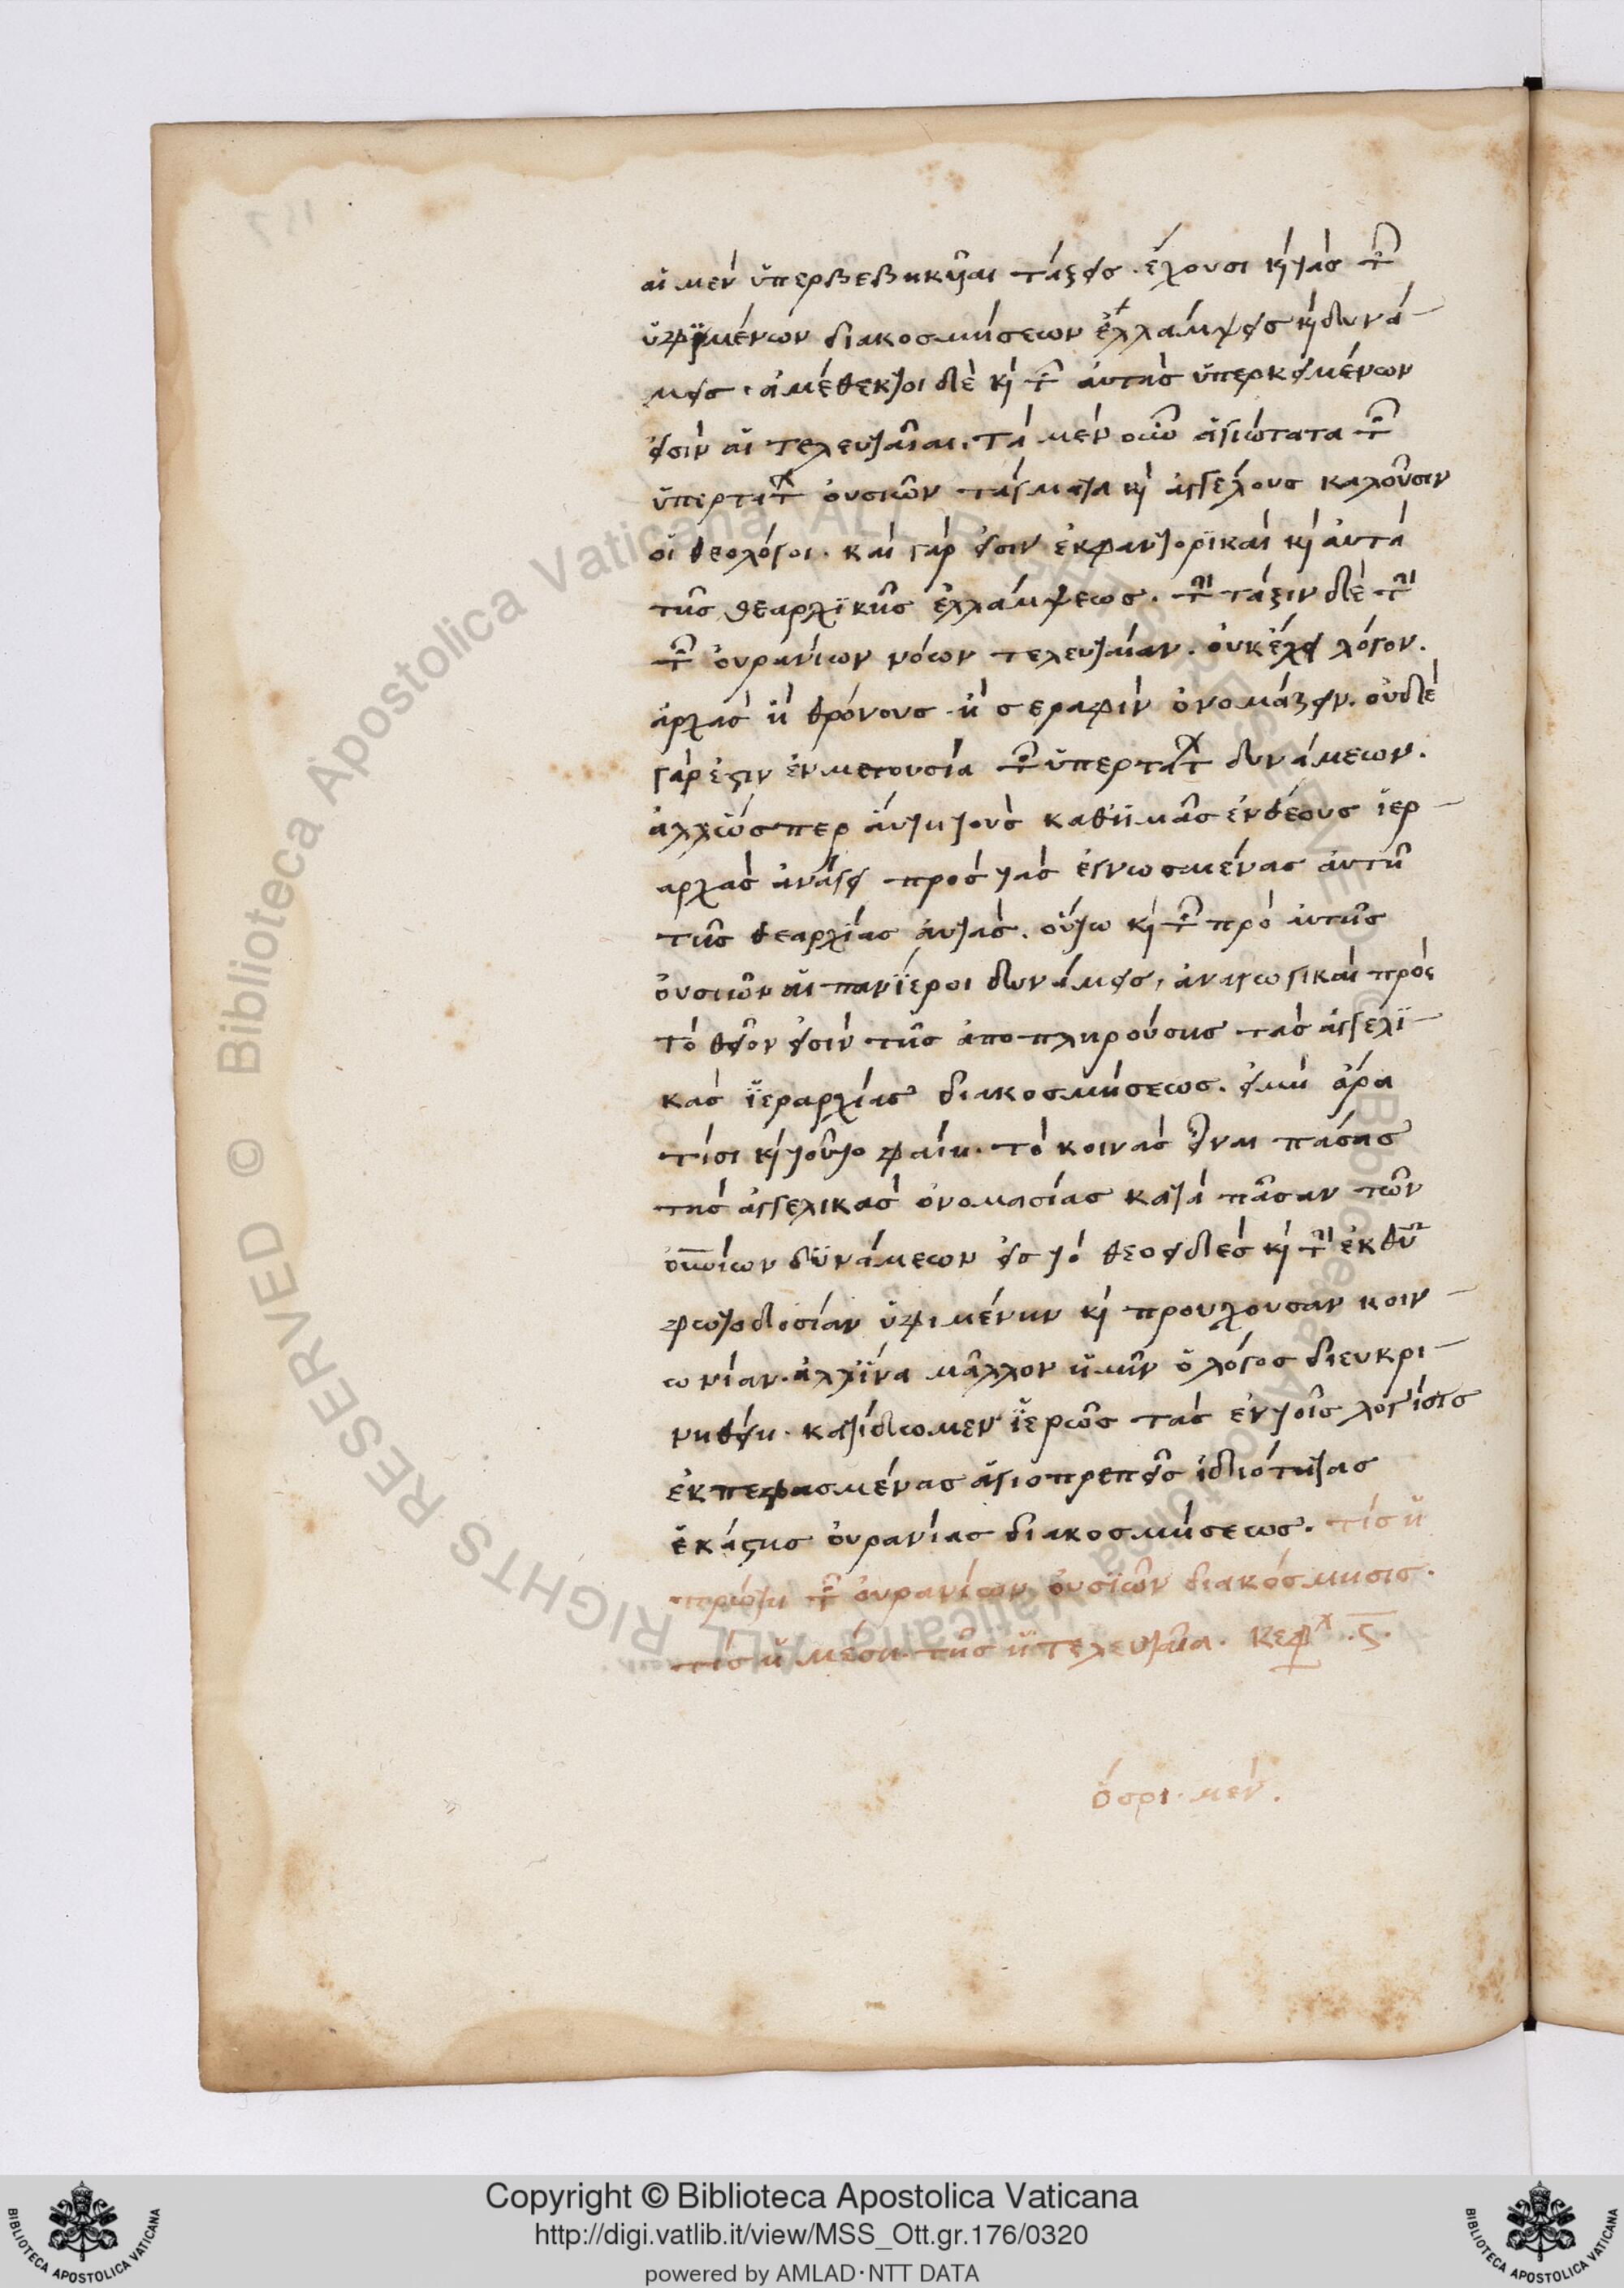 αἱ μὲν ὑπερβεβηκυῖαι τάξεις· ἔχουσι κ τὰς τῶν
ὑφημένων διακοσμήσεων ἐλλάμψεις κ δυνά-
μεις· ἀμέθεκτοι δὲ κ τῶν αὐτὰς ὑπερκειμένων
εἰσὶν αἱ τελευταῖαι. τὰ μὲν οὖν ἁγιώτατα τῶν
ὑπερτάτ οὐσιῶν τάγματα κ ἀγγέλους καλοῦσιν
οἱ θεολόγοι. καὶ γὰρ εἰσιν ἐκφαντορϊκαὶ κ αὐτὰ
τῆς θεαρχϊκῆς ἐλλάμψεως. τὴν τάξιν δὲ τὴν
τῶν οὐρανίων νόων τελευταίαν. οὐκ ἔχει λόγον.
ἀρχὰς ἢ θρόνους ἢ σεραφὶν ὀνομάζειν. οὐδὲ
γάρ ἐστιν ἐν μετουσία τῶν ὑπερτάτ δυνάμεων.
ἀλλ' ὥσπερ αὐτὴ τοὺς καθ' ἡμᾶς ἐνθέους ἱερ-
αρχὰς ἀνάγει πρὸς τὰς ἐγνωσμένας αὐτῆ
τῆς θεαρχίας αὐγάς. οὕτω κ τῶν πρὸ αὐτῆς
οὐσιῶν αἱ πανΐεροι δυνάμεις, ἀναγωγικαὶ πρὸς
τὸ θεῖον εἰσὶν τῆς ἀποπληρούσης τὰς ἀγγελϊ-
κὰς ἱεραρχίας διακοσμήσεως. εἰ μὴ ἄρα
τίσι κ τοῦτο φαίη. τὸ κοινὰς εἶναι πάσας
τὰς ἀγγελικὰς ὀνομασίας κατὰ πᾶσαν τῶν
οὐνίων δϋνάμεων εἰς τὸ θεοειδὲς κ τὴν ἐκ θυ
φωτοδοσίαν ὑφιμένην κ προυχουσαν κοιν-
ωνίαν. ἀλλ' ἵνα μᾶλλον ἡμῖν ὁ λόγος διευκρι-
νηθείη. κατίδωμεν ἱερῶς τὰς ἐν τοῖς λογίοις
ἐκπεφασμένας ἁγιοπρεπεῖς ἰδιότητας
ἑκάστης οὐρανίας διακοσμήσεως. τίς ἡ
πρώτη τῶν οὐρανίων οὐσϊῶν διακόσμησις.
τίς ἡ μέση. τῆς ἡ τελευταῖα. Κεφλ .ς.
ὅσρι. μέν.
Copyright © Biblioteca Apostolica Vaticana
http://digi.vatlib.it/view/MSS_Ott.gr.176/0320
powered by AMLAD·NTT DATA